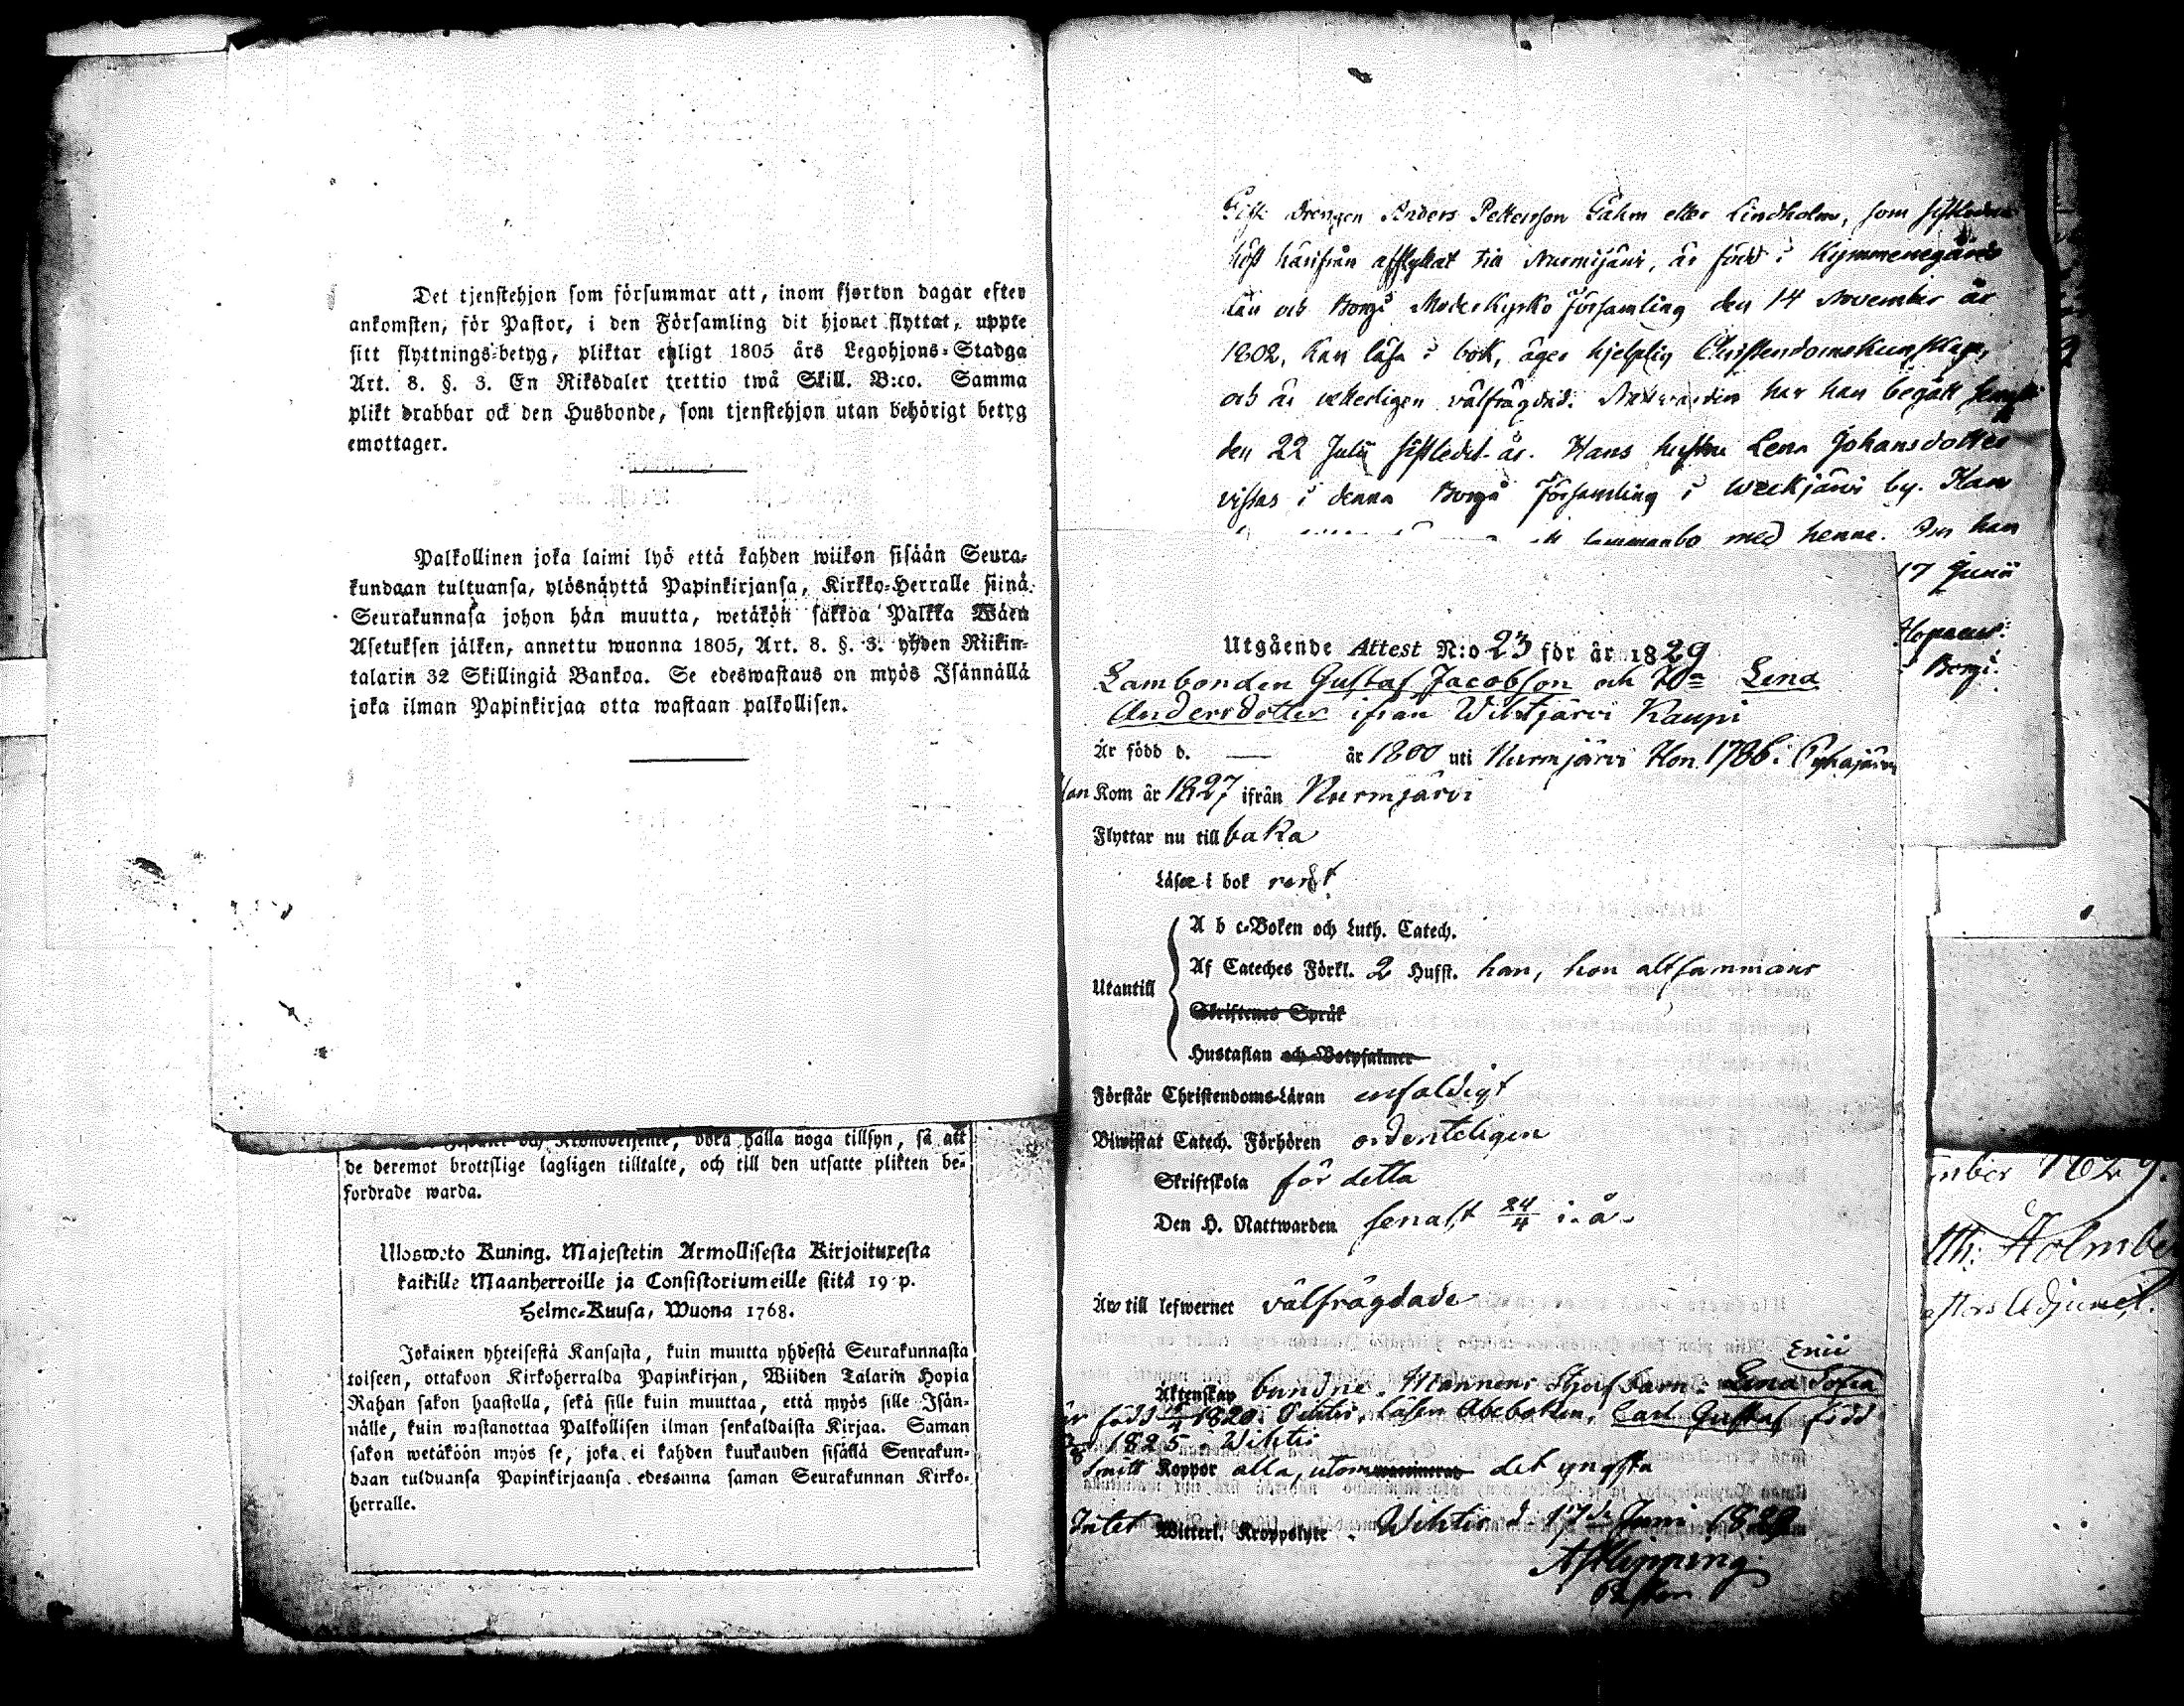 Det tjenstehjon som försummar att, inom fjorton dagar efter
ankomsten, för Pastor, i den Församling dit hjonet flyttat, uppte
sitt flyttnings-betyg, pliktar enligt 1805 års Legohjons-Stadga
Art. 8. §. 3. En Riksdaler trettio twå Skill. B:co. Samma
plikt drabbar ock den Husbonde, som tjenstehjon utan behörigt betyg
emottager.
Palkollinen joka laimi lyö että kahden wiikon sisään Seura-
kundaan tultuansa, ylösnäyttä Papinkirjansa, Kirkko-Herralle siinä
Seurakunnasa johon hän muutta, wetäkön sakkoa Palkka Wäen
Asetuksen jälken, annettu wuonna 1805, Art. 8. §. 3. yhden Riikin-
talarin 32 Skillingiä Bankoa. Se edeswastaus on myös Isännällä
joka ilman Papinkirjaa otta wastaan palkollisen.
och Kronobetjente, böra hålla noga tillsyn, så att
de deremot brottslige lagligen tilltalte, och till den utsatte plikten be-
fordrade warda.
Ulosweto Kuning. Majestetin Armollisesta Kirjoituxesta
kaikille Maanherroille ja Consistoriumeille siitä 19 p.
Helme-Kuusa, Wuona 1768.
Jokainen yhteisestä Kansasta, kuin muutta yhdestä Seurakunnasta
toiseen, ottakoon Kirkoherralda Papinkirjan, Wiiden Talarin Hopia
Rahan sakon haastolla, sekä sille kuin muuttaa, että myös sille Isän-
nälle, kuin wastanottaa Palkollisen ilman senkaldaista Kirjaa. Saman
sakon wetäköön myös se, joka ei kahden kuukauden sisällä Seurakun-
daan tulduansa Papinkirjaansa edesanna saman Seurakunnan Kirko-
herralle.
Drengen Anders Pettersson Galm eller Lindholm, som sistledne
höst härifrån afflyttat till Nurmijärvi, är född i Kymmenegårds
Län och Borgå Moderkyrko Församling den 14 November år
1802, kan läsa i bok, äger hjelplig Christendomskunskap,
och är vetterligen välfrägdad. Nattvarden har han begått senast
den 22 Julii sistledit år. Hans hustru Lena Johansdotter
vistas i denna Borgå Församling i Weckjärvi by. Han
sammanbo med henne. han
17 Junii
Borgå.
Utgående Attest N:o 23 för år 1829
Lambonden Gustaf Jacobson och Hu Lena
Andersdotter ifrån Wihtjärvi Kaupi
Är född d. — år 1800 uti Nurmjärvi Hon 1786 i Pyhajärvi
Han Kom år 1827 ifrån Nurmjärvi
Flyttar nu tillbaka
Läser i bok rent
A b c-Boken och Luth. Catech.
Af Cateches Förkl. 2 Hufst. han, hon altsammans
Utantill
Skriftenes Språk
Hustaflan och Botpsalmer
Förstår Christendoms-Läran enfaldigt
Biwistat Catech. Förhören ordenteligen
Skriftskola för detta
Den H. Nattwarden senast 24/4 i. å.
Är till lefwernet välfrägdade
Enii
Äktenskap bundne. Mannens Stjufbarn: Lena Sofia
är född 1820 i Vihtis, läser Abcboken, Carl Gustaf född
1825 i Wihtis
Haft Koppor alla, utom vaccinerad det yngsta
Intet Witterl. Kroppslyte. Wihtis d. 17de Juni 1829
A F Klipping
Pastor
mber 1829.
th: Holmbe
astors Adjunct.